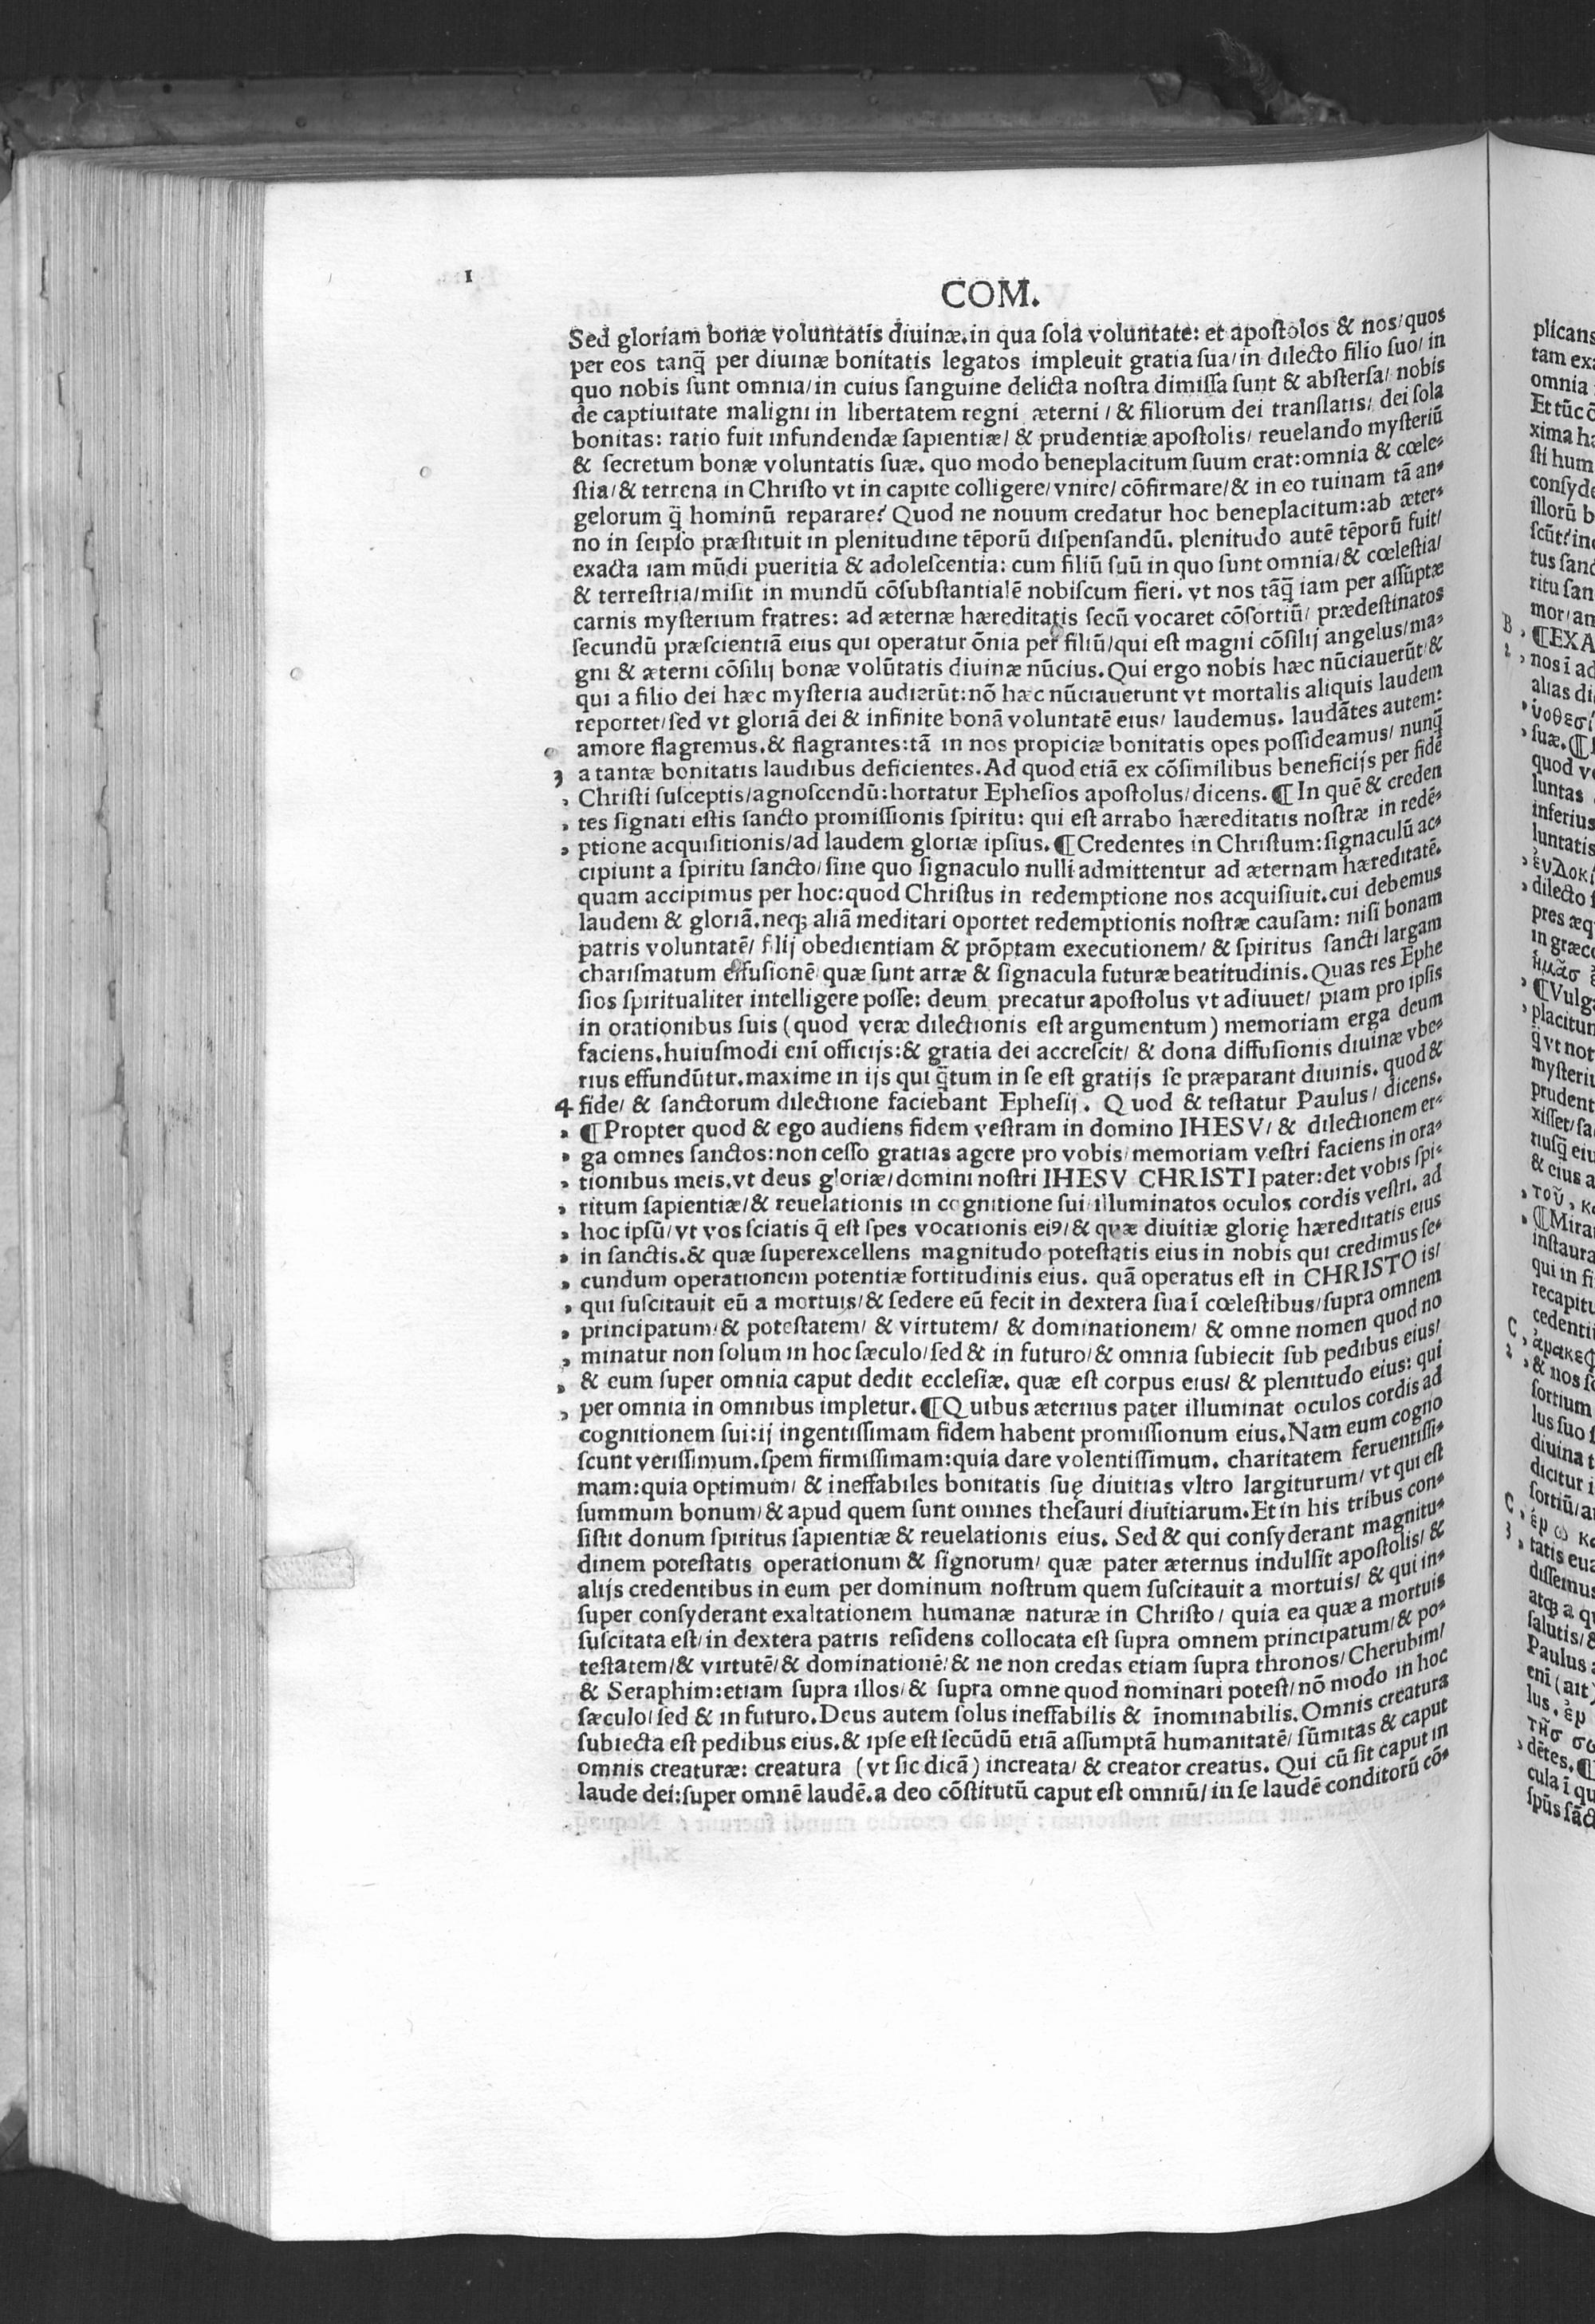 1
COM.
Sed gloriam bonæ voluntatis diuinæ.in qua ſola voluntate: et apoſtolos & nos/quos
per eos tanq̃ per diuinæ bonitatis legatos impleuit gratia ſua/in dilecto filio ſuo/in
quo nobis ſunt omnia/in cuius ſanguine delicta noſtra dimiſſa ſunt & abſterſa/nobis
de captiuitate maligni in libertatem regni æterni/& filiorum dei tranſlatis/dei ſola
bonitas: ratio fuit infundendæ ſapientiæ/& prudentiæ apoſtolis/reuelando myſteriũ
& ſecretum bonæ voluntatis ſuæ. quo modo beneplacitum ſuum erat:omnia & cœle-
ſtia/& terrena in Chriſto vt in capite colligere/vnire/cõfirmare/& in eo ruinam tã an-
gelorum q̃ hominũ reparare? Quod ne nouum credatur hoc beneplacitum:ab æter-
no in ſeipſo præſtituit in plenitudine tẽporũ diſpenſandũ. plenitudo autẽ tẽporũ fuit/
exacta iam mũdi pueritia & adoleſcentia: cum filiũ ſuũ in quo ſunt omnia/& cœleſtia/
& terreſtria/miſit in mundũ cõſubſtantialẽ nobiſcum fieri. vt nos tãq̃ iam per aſſũptæ
carnis myſterium fratres: ad æternæ hæreditatis ſecũ vocaret cõſortiũ/ prædeſtinatos
ſecundũ præſcientiã eius qui operatur õnia per filiũ/qui eſt magni cõſilij angelus/ma-
gni & æterni cõſilij bonæ volũtatis diuinæ nũcius. Qui ergo nobis hæc nũciauerũt/&
qui a filio dei hæc myſteria audierũt:nõ hæc nũciauerunt vt mortalis aliquis laudem
reportet/ſed vt gloriã dei & infinite bonã voluntatẽ eius/ laudemus. laudãtes autem:
amore flagremus.& flagrantes:tã in nos propiciæ bonitatis opes poſſideamus/ nunq̃
3 a tantæ bonitatis laudibus deficientes. Ad quod etiã ex cõſimilibus beneficijs per fidẽ
, Chriſti ſuſceptis/agnoſcendũ:hortatur Epheſios apoſtolus/dicens. ¶ In quẽ & creden
, tes ſignati eſtis ſancto promiſſionis ſpiritu: qui eſt arrabo hæreditatis noſtræ in redẽ-
, ptione acquiſitionis/ad laudem gloriæ ipſius. ¶ Credentes in Chriſtum:ſignaculũ ac-
cipiunt a ſpiritu ſancto/ſine quo ſignaculo nulli admittentur ad æternam hæreditatẽ.
quam accipimus per hoc:quod Chriſtus in redemptione nos acquiſiuit.cui debemus
laudem & gloriã.neq; aliã meditari oportet redemptionis noſtræ cauſam: niſi bonam
patris voluntatẽ/ filij obedientiam & prõptam executionem/ & ſpiritus ſancti largam
chariſmatum effuſionẽ quæ ſunt arræ & ſignacula futuræ beatitudinis. Quas res Ephe
ſios ſpiritualiter intelligere poſſe: deum precatur apoſtolus vt adiuuet/ piam pro ipſis
in orationibus ſuis (quod veræ dilectionis eſt argumentum) memoriam erga deum
faciens.huiuſmodi enĩ officijs:& gratia dei accreſcit/ & dona diffuſionis diuinæ vbe-
rius effundũtur.maxime in ijs qui q̃tum in ſe eſt gratijs ſe præparant diuinis. quod &
4 fide/ & ſanctorum dilectione faciebant Epheſij. Quod & teſtatur Paulus/ dicens.
, ¶ Propter quod & ego audiens fidem veſtram in domino IHESV/ & dilectionem er-
, ga omnes ſanctos:non ceſſo gratias agere pro vobis/memoriam veſtri faciens in ora-
, tionibus meis.vt deus gloriæ/domini noſtri IHESV CHRISTI pater:det vobis ſpi-
, ritum ſapientiæ/& reuelationis in cognitione ſui/illuminatos oculos cordis veſtri. ad
, hoc ipſũ/vt vos ſciatis q̃ eſt ſpes vocationis ei9/& quæ diuitiæ glorię hæreditatis eius
, in ſanctis.& quæ ſuperexcellens magnitudo poteſtatis eius in nobis qui credimus ſe-
, cundum operationem potentiæ fortitudinis eius. quã operatus eſt in CHRISTO is/
, qui ſuſcitauit eũ a mortuis/& ſedere eũ fecit in dextera ſua ĩ cœleſtibus/ſupra omnem
, principatum/& poteſtatem/ & virtutem/ & dominationem/ & omne nomen quod no
, minatur non ſolum in hoc ſæculo/ſed & in futuro/& omnia ſubiecit ſub pedibus eius/
, & eum ſuper omnia caput dedit eccleſiæ. quæ eſt corpus eius/ & plenitudo eius: qui
, per omnia in omnibus impletur. ¶ Quibus æternus pater illuminat oculos cordis ad
cognitionem ſui:ij ingentiſſimam fidem habent promiſſionum eius. Nam eum cogno
ſcunt veriſſimum.ſpem firmiſſimam:quia dare volentiſſimum. charitatem feruentiſſi-
mam:quia optimum/ & ineffabiles bonitatis ſuę diuitias vltro largiturum/ vt qui eſt
ſummum bonum/& apud quem ſunt omnes theſauri diuitiarum. Et in his tribus con-
ſiſtit donum ſpiritus ſapientiæ & reuelationis eius. Sed & qui conſyderant magnitu-
dinem poteſtatis operationum & ſignorum/ quæ pater æternus indulſit apoſtolis/ &
alijs credentibus in eum per dominum noſtrum quem ſuſcitauit a mortuis/ & qui in-
ſuper conſyderant exaltationem humanæ naturæ in Chriſto/ quia ea quæ a mortuis
ſuſcitata eſt/in dextera patris reſidens collocata eſt ſupra omnem principatum/& po-
teſtatem/& virtutẽ/& dominationẽ/& ne non credas etiam ſupra thronos/Cherubim/
& Seraphim:etiam ſupra illos/& ſupra omne quod nominari poteſt/nõ modo in hoc
ſæculo/ſed & in futuro. Deus autem ſolus ineffabilis & ĩnominabilis. Omnis creatura
ſubiecta eſt pedibus eius.& ipſe eſt ſecũdũ etiã aſſumptã humanitatẽ/ ſũmitas & caput
omnis creaturæ: creatura (vt ſic dicã) increata/ & creator creatus. Qui cũ ſit caput in
laude dei:ſuper omnẽ laudẽ.a deo cõſtitutũ caput eſt omniũ/ in ſe laudẽ conditorũ cõ-
plicans
tam ex
omnia
Et tũc
xima h
ſti hum
conſyd
illorũ b
ſcũt? in
tus ſanc
ritu ſan
mor/an
B , ¶ EXA
2 , nos ĩ ad
alias di
, ſuæ. ¶
quod v
luntas
inferius
luntatis
, dilecto
pres æq
in græco
, ¶ Vulg
, placitum
q̃ vt not
myſteriu
prudent
xiſſet/ſa
riuſq̃ eiu
& eius a
, ¶ Mira
inſtaura
qui in fi
recapitu
cedenti
, & nos ſo
ſortium
lus ſuo
diuina
dicitur
ſortiũ/a
3 , tatis eua
diſſemus
atq; a q
ſalutis/&
Paulus
enĩ (ait)
lus.
, dẽtes. ¶
cula ĩ qu
ſpũs ſãct